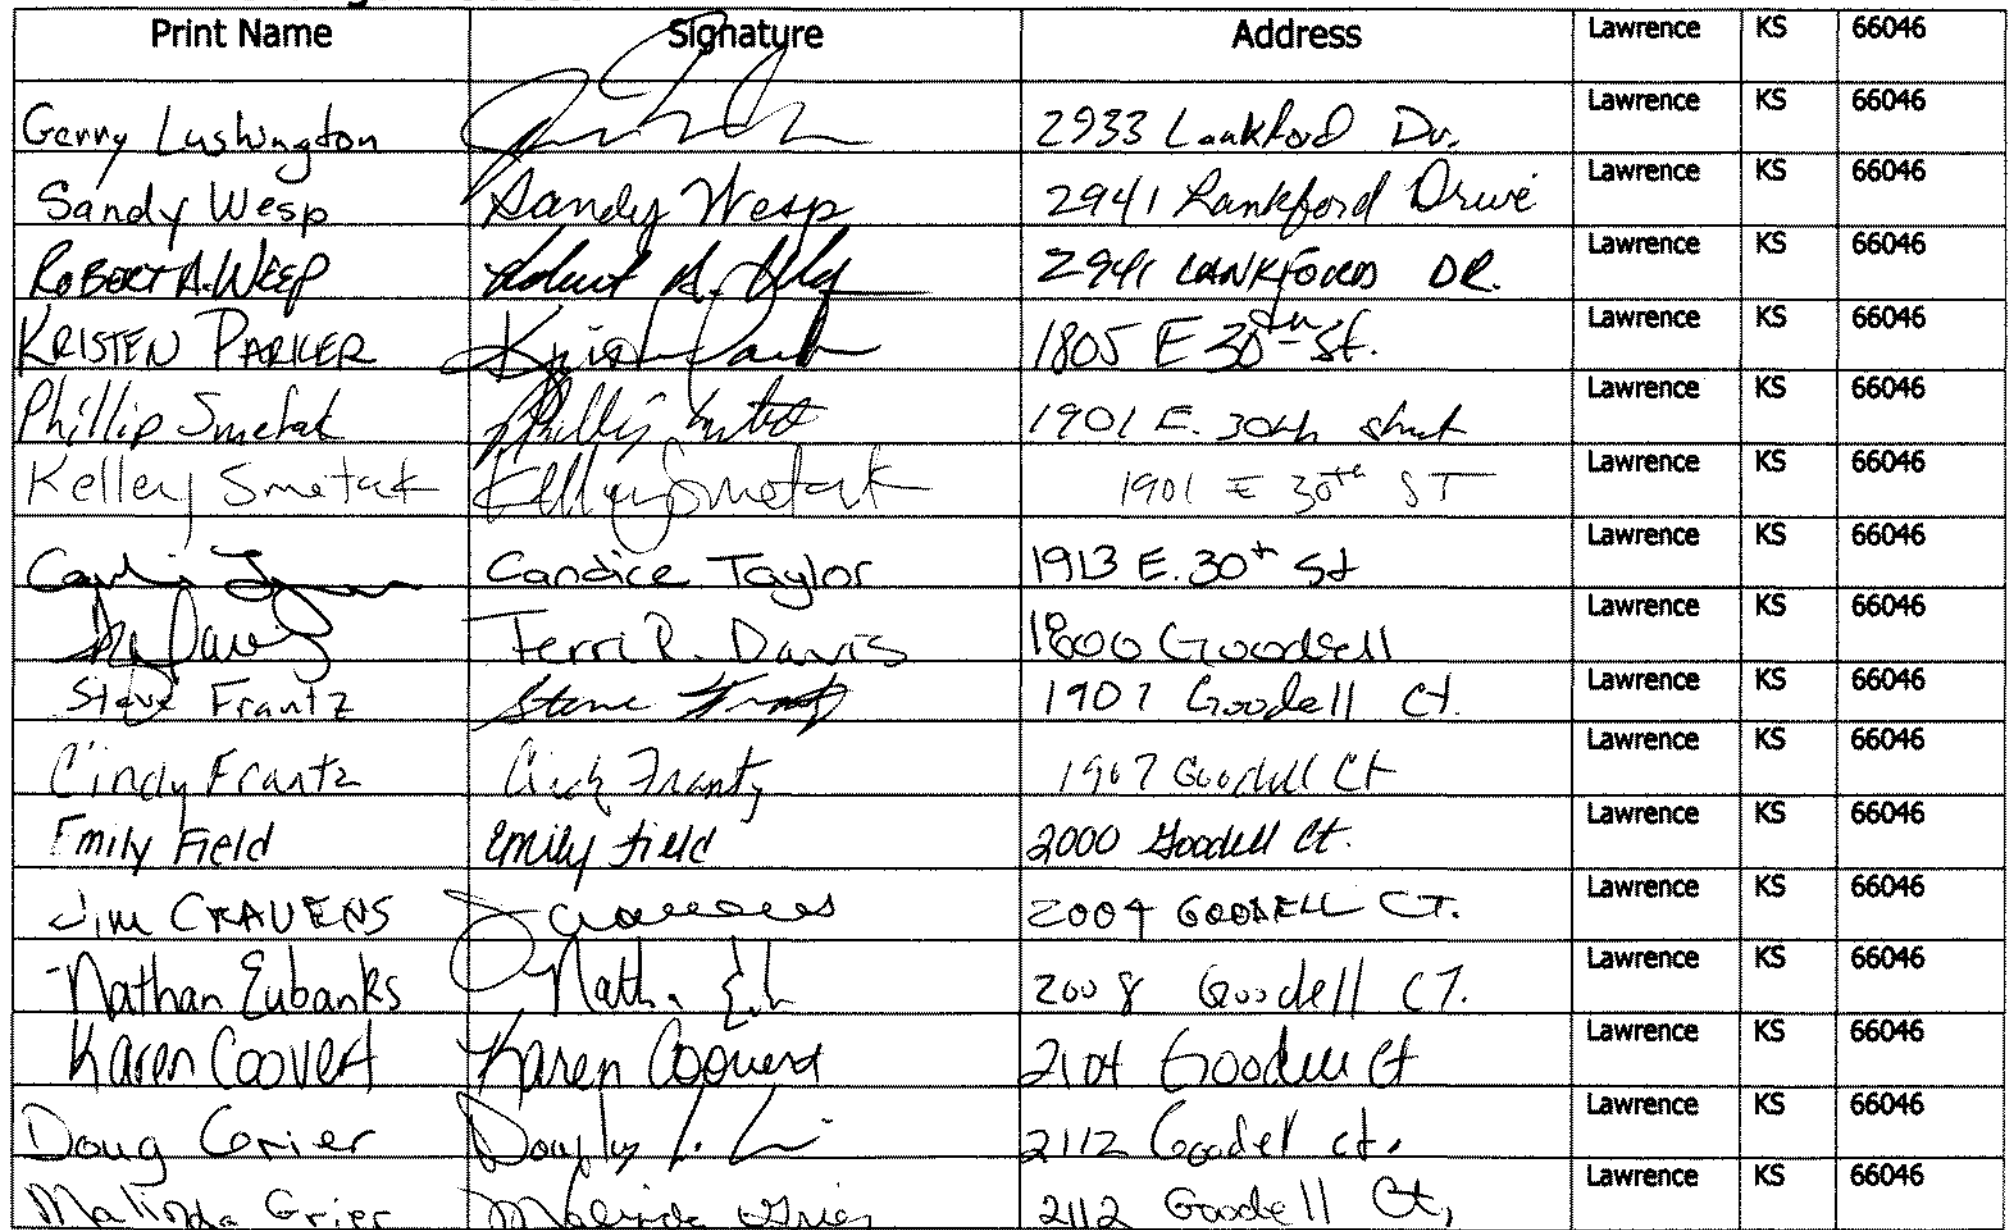 Print Name Signature Address Lawrence KS 66046
Gerry Lushington 2933 Lankford Dr. Lawrence KS 66046
Sandy Wesp Sandy Wesp 2941 Lankford Drive Lawrence KS 66046
ROBERT A. WESP Robert A. 2941 LANKFORD DR. Lawrence KS 66046
KRISTEN PARKER 1805 E 30th St. Lawrence KS 66046
Phillip Smetak 1901 E. 30th street Lawrence KS 66046
Kelley Smetak Kelley Smetak 1901 E 30th ST Lawrence KS 66046
Candice Taylor 1913 E. 30th St Lawrence KS 66046
Davis Terri R. Davis 1800 Goodell Lawrence KS 66046
Steve Frantz Steve Frantz 1907 Goodell Ct. Lawrence KS 66046
Cindy Frantz Cindy Frantz 1907 Goodell Ct Lawrence KS 66046
Emily Field Emily Field 2000 Goodell Ct. Lawrence KS 66046
Jim CRAVENS J Cravens 2004 GOODELL CT. Lawrence KS 66046
Nathan Eubanks 2008 Goodell CT. Lawrence KS 66046
Karen Coovert Karen Coovert 2104 Goodell Ct Lawrence KS 66046
Doug Grier 2112 Goodell ct. Lawrence KS 66046
Malinda Grier Malinda Grier 2112 Goodell Ct, Lawrence KS 66046